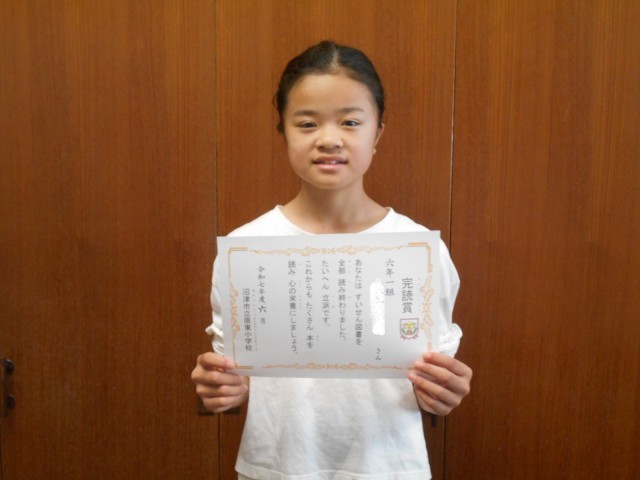 完読賞
六年一組
さん
あなたは すいせん図書を
全部 読み終わりました。
たいへん 立派です。
これからも たくさん 本を
読み 心の栄養にしましょう。
令和七年度 六月
沼津市立開東小学校